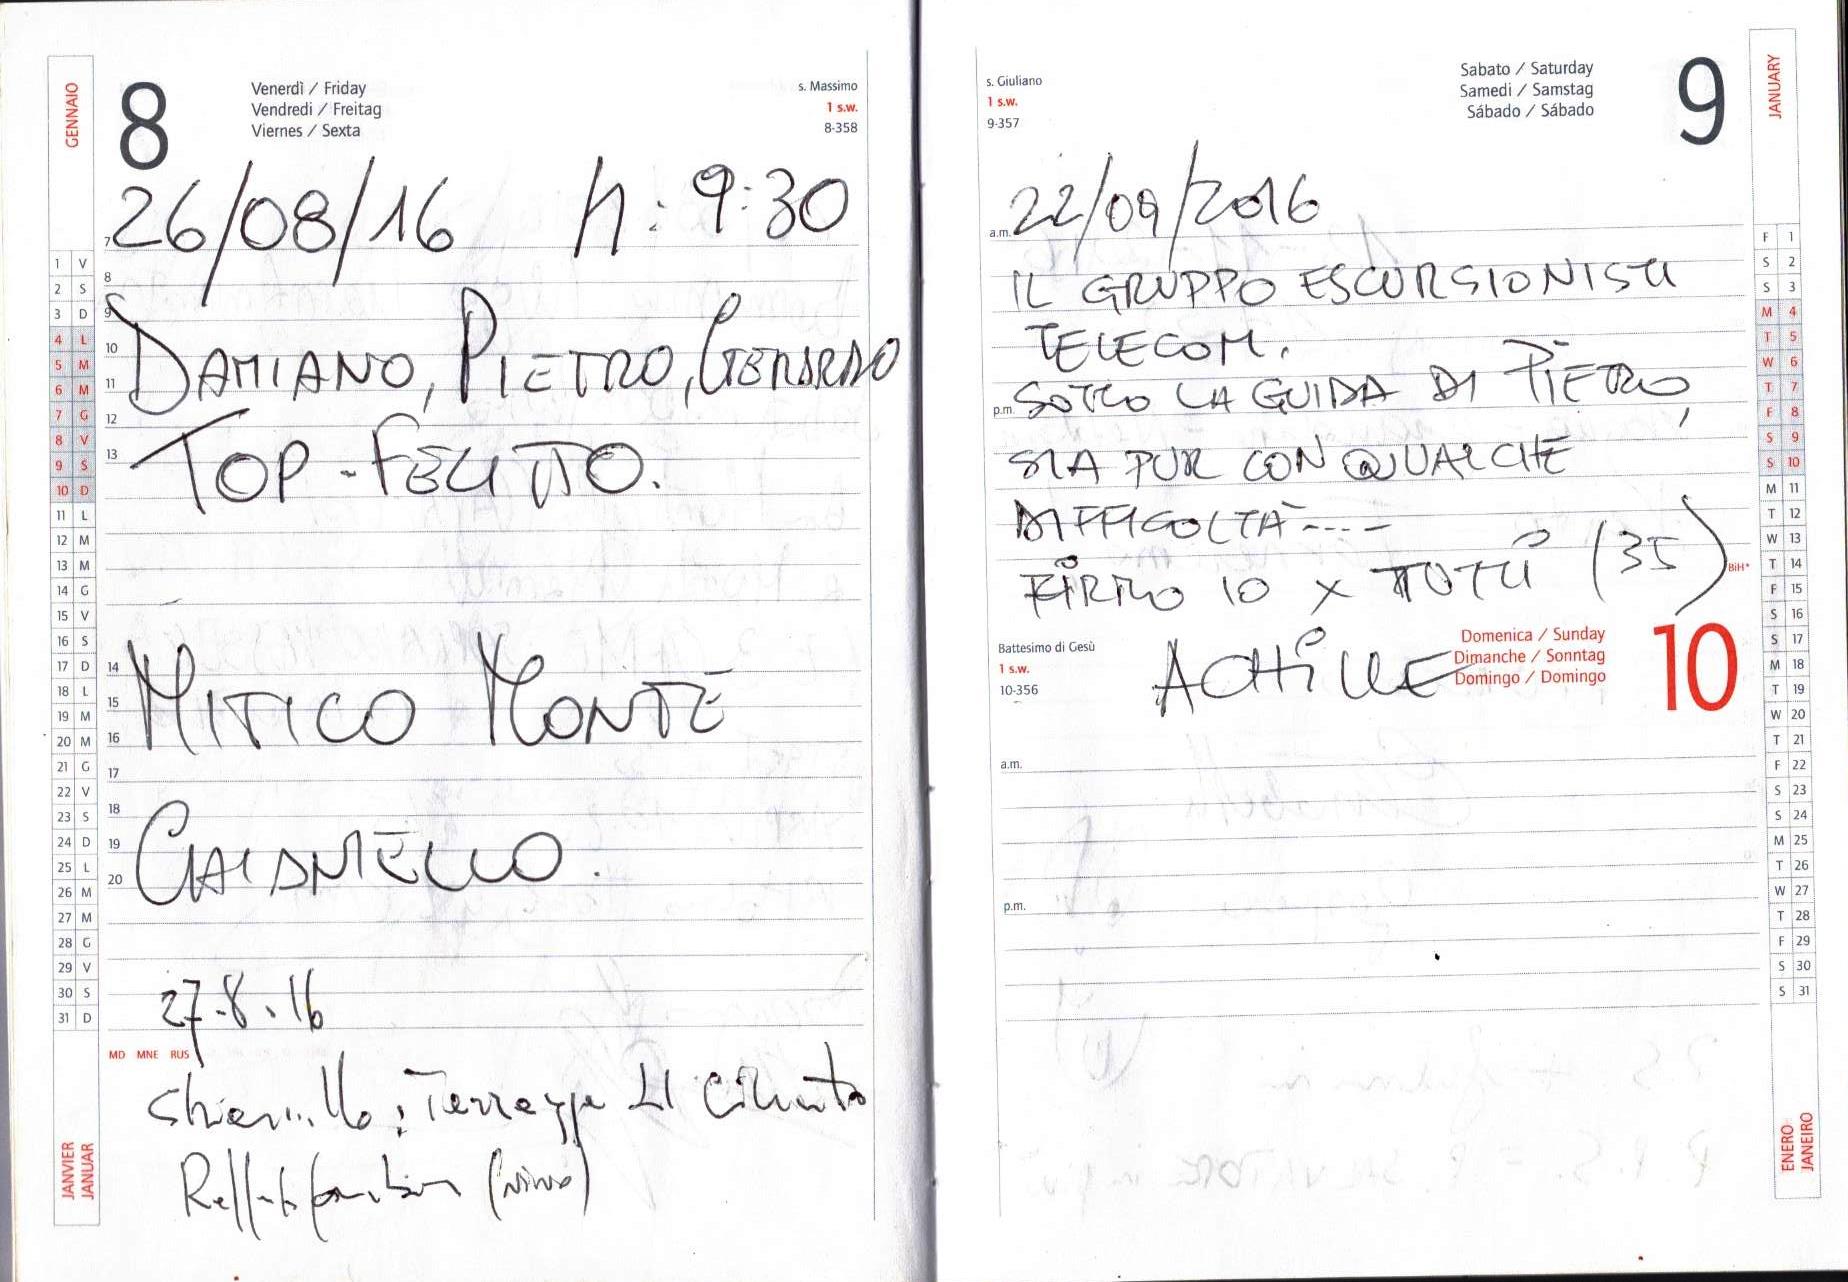 GENNAIO
8
Venerdì / Friday
Vendredi / Freitag
Viernes / Sexta
s. Massimo
1 s.w.
8-358
26/08/16 h: 9:30
DAMIANO, PIETRO, GERARDO
TOP-FELITTO.
MITICO MONTE
CHIANIELLO.
27.8.16
MD MNE RUS
Terrazze del Cilento
7
8
9
10
11
12
13
14
15
16
17
18
19
20
1 V
2 S
3 D
4 L
5 M
6 M
7 G
8 V
9 S
10 D
11 L
12 M
13 M
14 G
15 V
16 S
17 D
18 L
19 M
20 M
21 G
22 V
23 S
24 D
25 L
26 M
27 M
28 G
29 V
30 S
31 D
JANVIER
JANUAR
s. Giuliano
1 s.w.
9-357
Sabato / Saturday
Samedi / Samstag
Sábado / Sábado
9
JANUARY
22/09/2016
a.m.
IL GRUPPO ESCURSIONISTI
TELECOM.
p.m.
SOTTO LA GUIDA DI PIETRO,
SIA PUR CON QUALCHE
DIFFICOLTA'----
FIRMO IO X TUTTI (35)
BIH*
Battesimo di Gesù
1 s.w.
10-356
ACHILLE
Domenica / Sunday
Dimanche / Sonntag
Domingo / Domingo
10
a.m.
p.m.
F 1
S 2
S 3
M 4
T 5
W 6
T 7
F 8
S 9
S 10
M 11
T 12
W 13
T 14
F 15
S 16
S 17
M 18
T 19
W 20
T 21
F 22
S 23
S 24
M 25
T 26
W 27
T 28
F 29
S 30
S 31
ENERO
JANEIRO